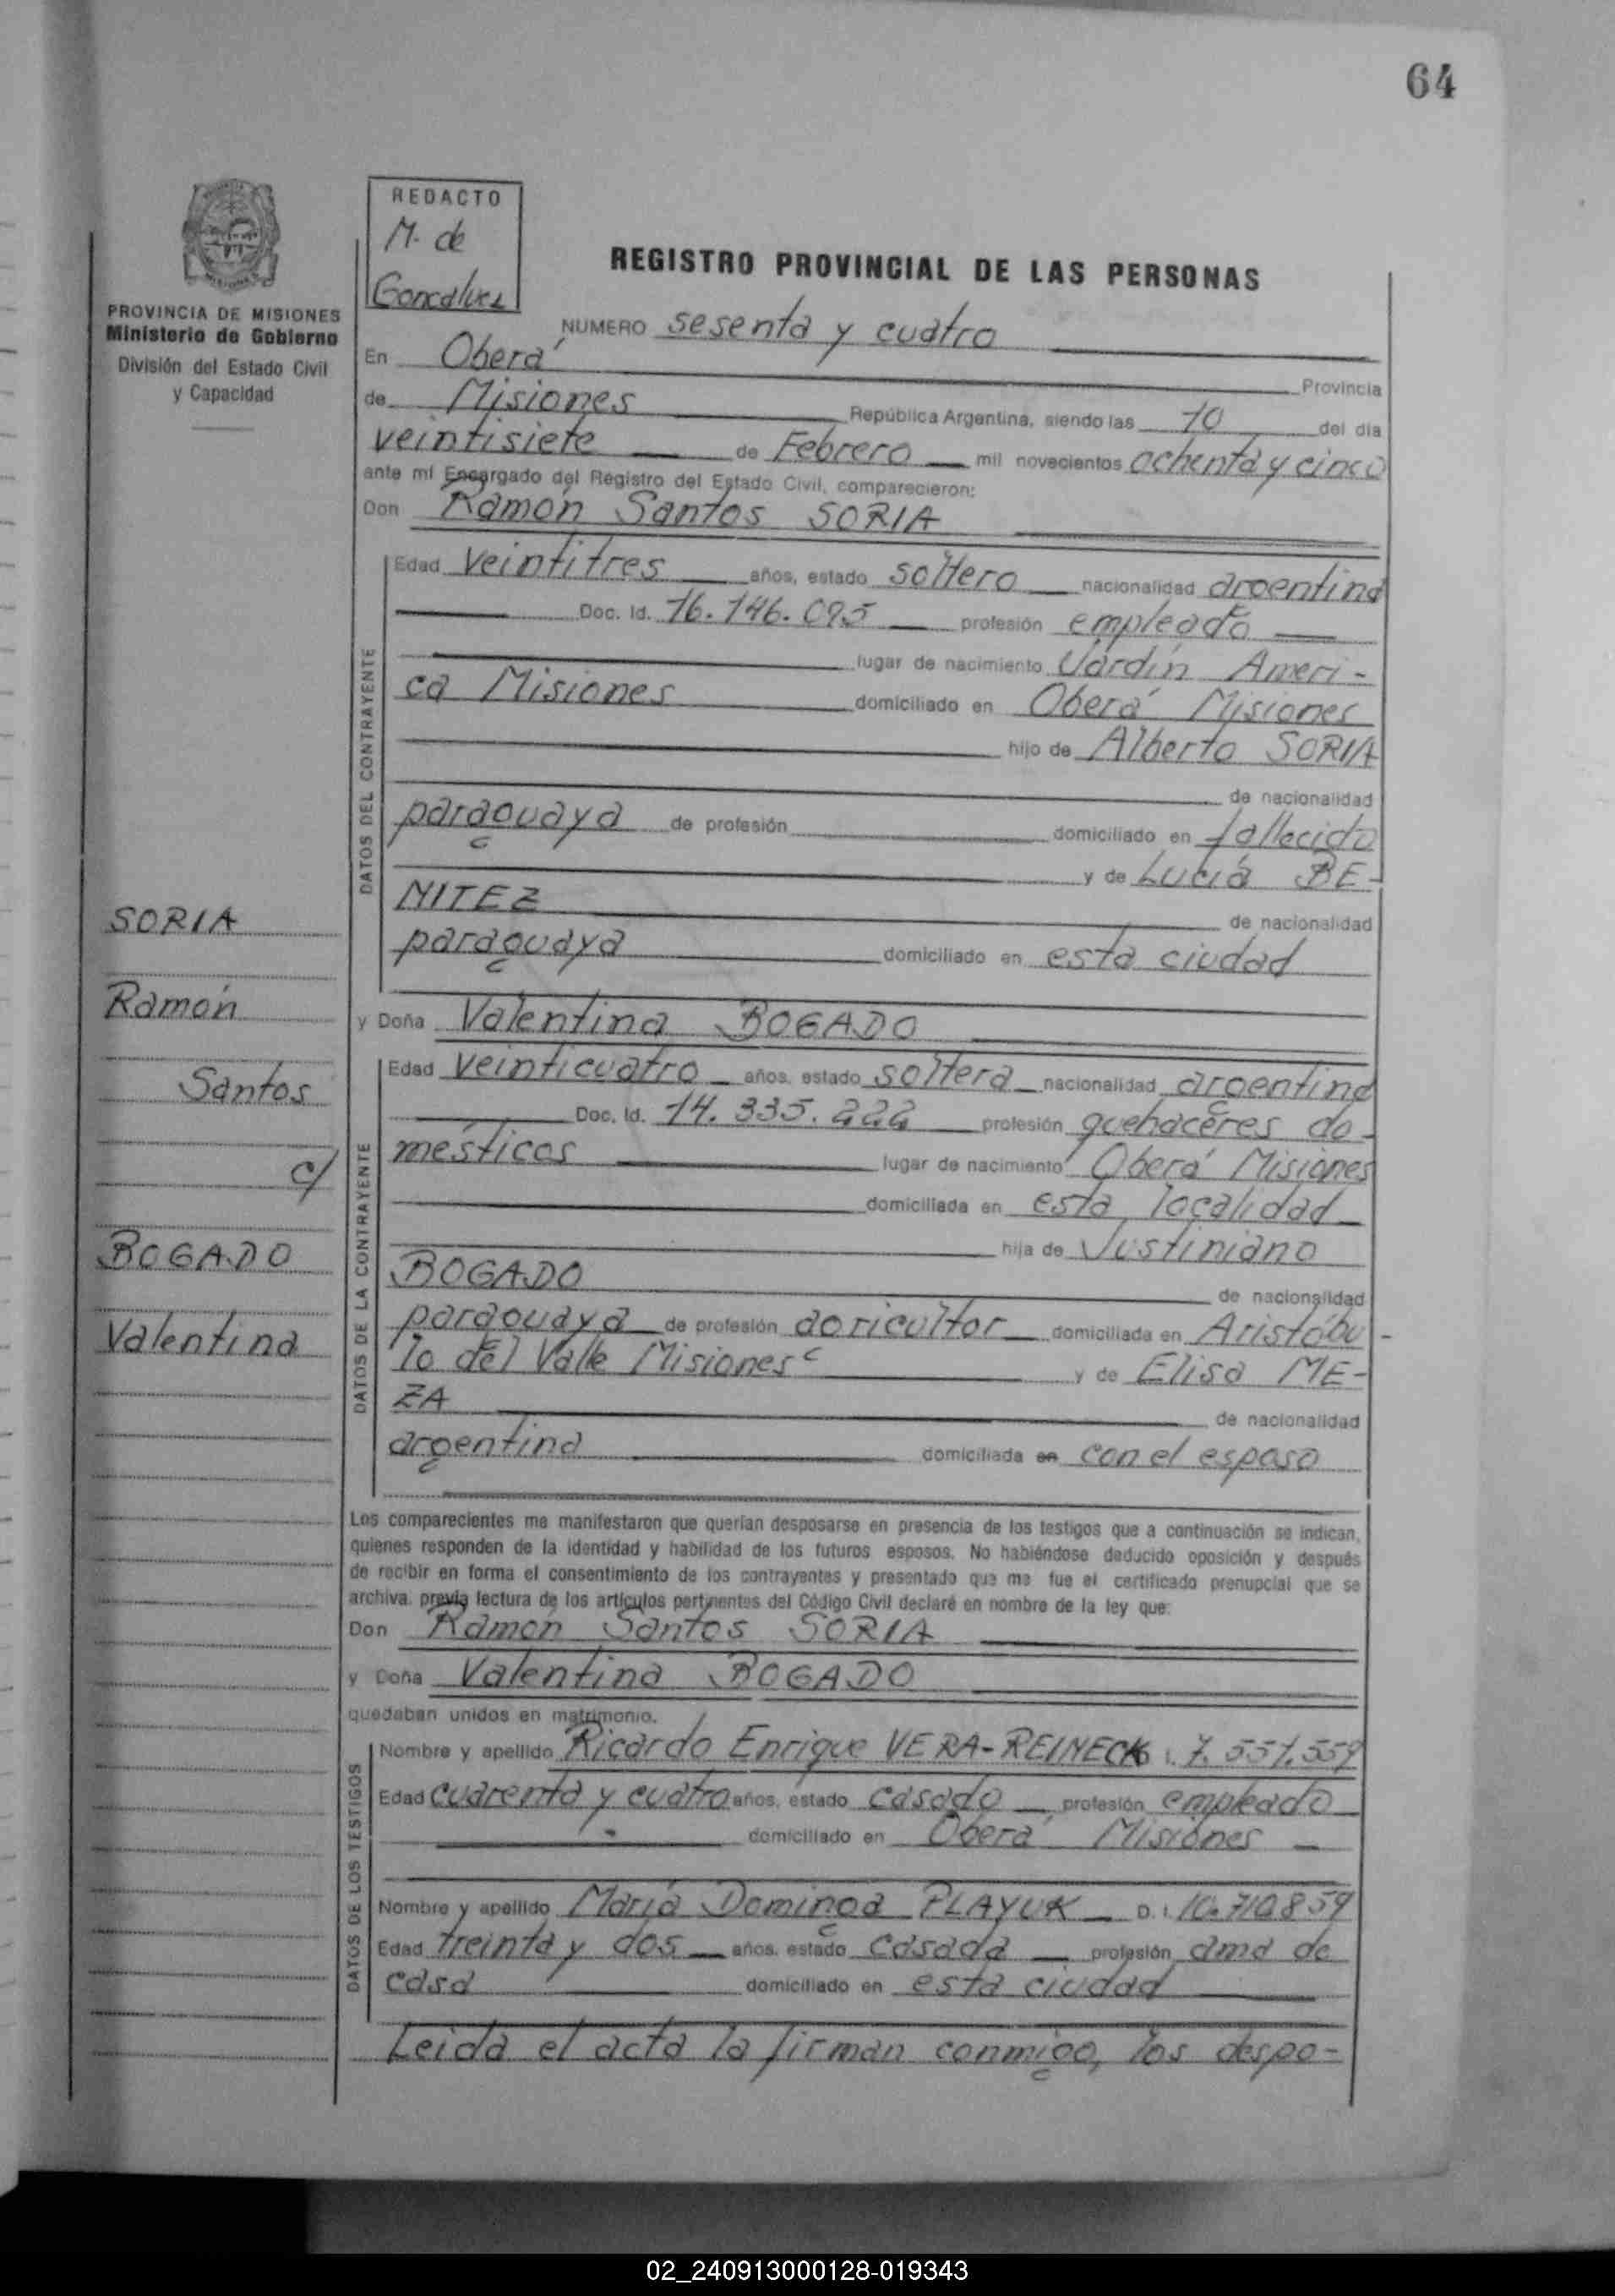 64
REDACTO
M. de
Goncalves
PROVINCIA DE MISIONES
Ministerio de Gobierno
División del Estado Civil
y Capacidad
REGISTRO PROVINCIAL DE LAS PERSONAS
NUMERO sesenta y cuatro
En Oberá Provincia
de Misiones República Argentina, siendo las 10 del día
veintisiete de Febrero mil novecientos ochenta y cinco
ante mí Encargado del Registro del Estado Civil, comparecieron:
Don Ramón Santos SORIA
DATOS DEL CONTRAYENTE
Edad veintitres años, estado soltero nacionalidad argentina
Doc. Id. 16.146.095 profesión empleado
lugar de nacimiento Jardín Ameri-
ca Misiones domiciliado en Oberá Misiones
hijo de Alberto SORIA
de nacionalidad
paraguaya de profesión domiciliado en fallecido
y de Lucía BE-
NITEZ de nacionalidad
paraguaya domiciliado en esta ciudad
y Doña Valentina BOGADO
DATOS DE LA CONTRAYENTE
Edad veinticuatro años, estado soltera nacionalidad argentina
Doc. Id. 14.335.222 profesión quehaceres do-
mésticos lugar de nacimiento Oberá Misiones
domiciliada en esta localidad
hija de Justiniano
BOGADO de nacionalidad
paraguaya de profesión agricultor domiciliada en Aristóbu-
lo del Valle Misiones y de Elisa ME-
ZA de nacionalidad
argentina domiciliada en con el esposo
SORIA
Ramón
Santos
c/
BOGADO
Valentina
Los comparecientes me manifestaron que querían desposarse en presencia de los testigos que a continuación se indican,
quienes responden de la identidad y habilidad de los futuros esposos. No habiéndose deducido oposición y después
de recibir en forma el consentimiento de los contrayentes y presentado que me fue el certificado prenupcial que se
archiva, previa lectura de los artículos pertinentes del Código Civil declaré en nombre de la ley que:
Don Ramón Santos SORIA
y Doña Valentina BOGADO
quedaban unidos en matrimonio.
DATOS DE LOS TESTIGOS
Nombre y apellido Ricardo Enrique VERA-REINECK 7.551.559
Edad cuarenta y cuatro años, estado casado profesión empleado
domiciliado en Oberá Misiones
Nombre y apellido María Dominga PLAYUK D.I. 10.710859
Edad treinta y dos años, estado casada profesión ama de
casa domiciliado en esta ciudad
Leida el acta la firman conmigo, los despo-
02_240913000128-019343